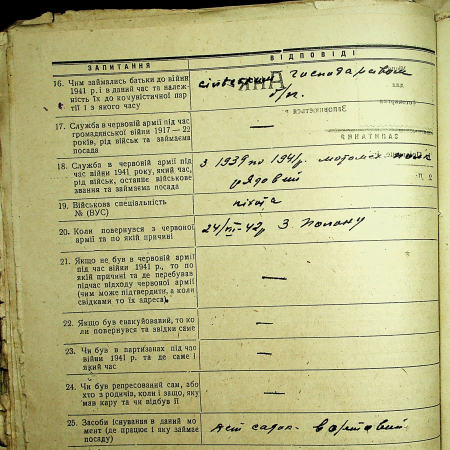 ЗАПИТАННЯ
ВІДПОВІДІ
16. Чим займались батьки до війни
1941 р. і в даний час та належ-
ність їх до комуністичної пар-
тії і з якого часу
сільським господарством
б/п.
17. Служба в червоній армії під час
громадянської війни 1917 — 22
років, рід військ та займаєма
посада
—
18. Служба в червоній армії під
час війни 1941 року, який час,
рід військ, останнє військове
звання та займаєма посада
з 1939 по 1941 р.
рядовий
19. Військова спеціяльність
№ (ВУС)
піхота
20. Коли повернувся з червоної
армії та по якій причині
24/III-42 р. З полону
21. Якщо не був в червоній армії
під час війни 1941 р., то по
якій причині та де перебував
підчас відходу червоної армії
(чим може підтвердити, а коли
свідками то їх адреса)
—
22. Якщо був евакуйований, то ко
ли повернувся та звідки саме
—
23. Чи був в партизанах під час
війни 1941 р. та де саме і
який час
—
24. Чи був репресований сам, або
хто з родичів, коли і защо, яку
мав кару та чи відбув її
—
25. Засоби існування в даний мо
мент (де працює і яку займає
посаду)
вартовий